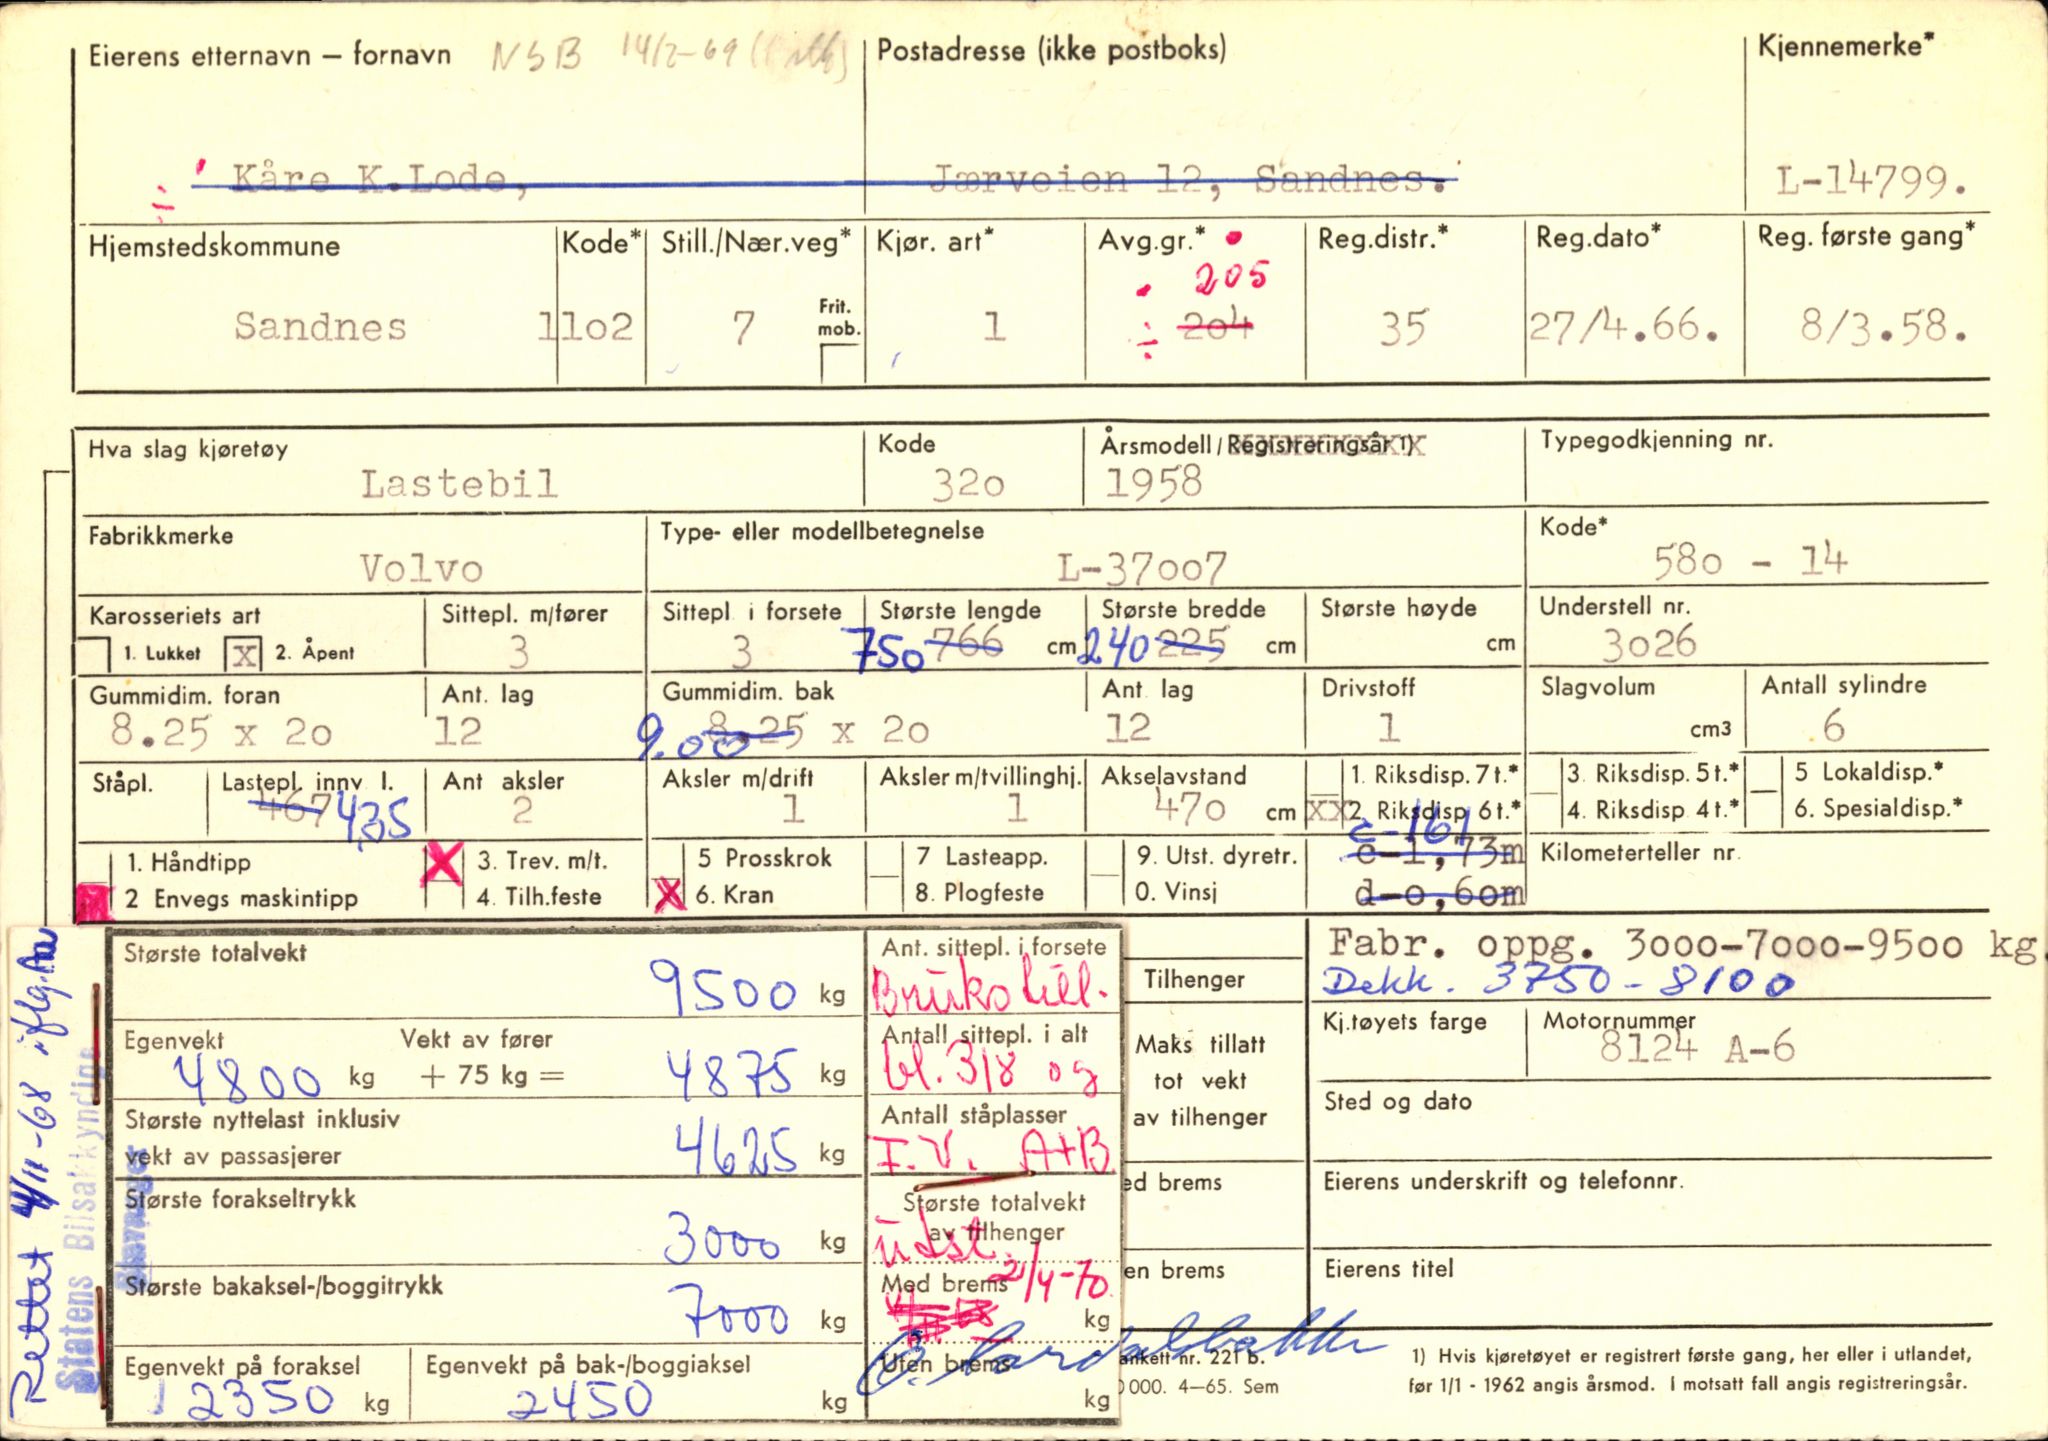 Eierens etternavn – fornavn NSB 14/2-69 Postadresse (ikke postboks) Kjennemerke*
Kåre K.Lode, Jærveien 12, Sandnes. L-14799.
Hjemstedskommune Kode* Still./Nær.veg* Kjør. art* Avg.gr.* Reg.distr.* Reg.dato* Reg. første gang*
205
Sandnes 11o2 7 Frit. mob. 1 204 35 27/4.66. 8/3.58.
Hva slag kjøretøy Kode Årsmodell / Registreringsår 1) Typegodkjenning nr.
Lastebil 32o 1958
Fabrikkmerke Type- eller modellbetegnelse Kode*
Volvo L-37oo7 58o - 14
Karosseriets art Sittepl. m/fører Sittepl i forsete Største lengde Største bredde Største høyde Understell nr.
1. Lukket X 2. Åpent 3 3 750 766 cm 240 225 cm cm 3o26
Gummidim. foran Ant. lag Gummidim. bak Ant lag Drivstoff Slagvolum Antall sylindre
8.25 x 2o 12 9.00 8.25 x 2o 12 1 cm3 6
Ståpl. Lastepl. innv l. Ant aksler Aksler m/drift Aksler m/tvillinghj. Akselavstand 1. Riksdisp. 7 t.* 3. Riksdisp. 5 t.* 5 Lokaldisp.*
467 435 2 1 1 47o cm XX 2. Riksdisp 6 t.* 4. Riksdisp 4 t.* 6. Spesialdisp.*
c-161
1. Håndtipp X 3. Trev. m/t. 5 Prosskrok 7 Lasteapp. 9. Utst. dyretr. c-1,73m Kilometerteller nr.
2 Envegs maskintipp 4. Tilh.feste X 6. Kran 8. Plogfeste 0. Vinsj d-o,6om
Største totalvekt 9500 kg Ant. sittepl. i forsete Fabr. oppg. 3ooo-7ooo-95oo kg.
Bruks till. Tilhenger Dekk. 3750 - 8100
Egenvekt Vekt av fører Antall sittepl. i alt Maks tillatt Kj.tøyets farge Motornummer
4800 kg + 75 kg = 4875 kg bl. 3/8 og tot vekt 8124 A-6
Største nyttelast inklusiv Antall ståplasser av tilhenger Sted og dato
vekt av passasjerer 4625 kg I.V. A+B.
Største forakseltrykk Største totalvekt ed brems Eierens underskrift og telefonnr.
3000 kg av tilhenger
utst.
Største bakaksel-/boggitrykk Med brems 21/4-70 en brems Eierens titel
7000 kg kg
Egenvekt på foraksel Egenvekt på bak-/boggiaksel Uten brems ankett nr. 221 b. 1) Hvis kjøretøyet er registrert første gang, her eller i utlandet,
2350 kg 2450 kg kg 0 000. 4–65. Sem før 1/1 - 1962 angis årsmod. I motsatt fall angis registreringsår.
Rettet 4/11-68 iflg.
Statens Bilsakkyndige
Stavanger